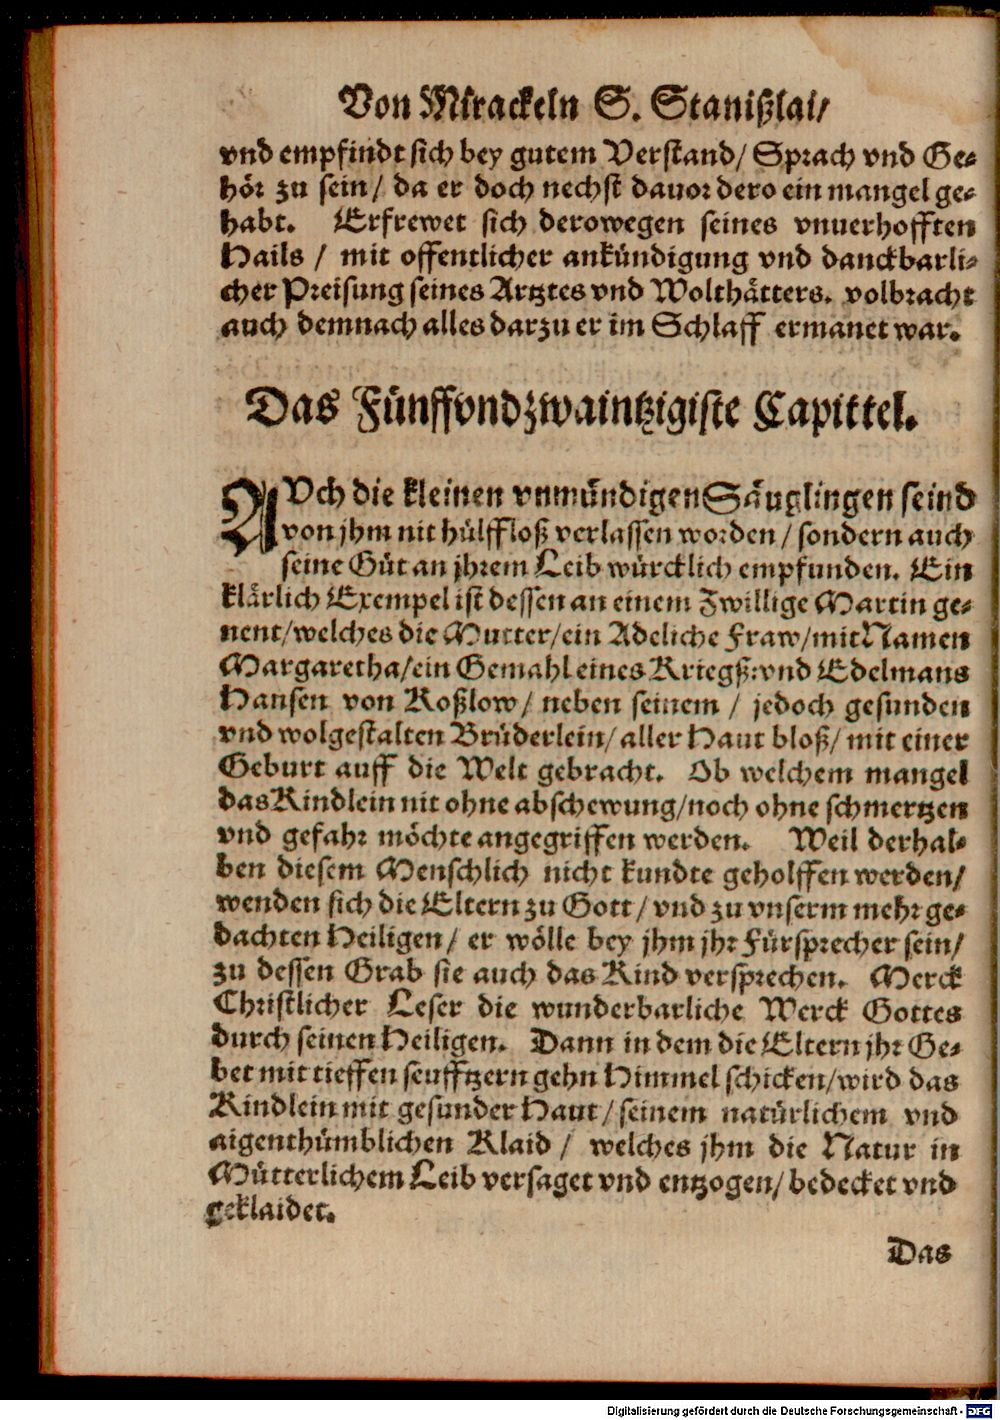 Von Mirackeln S. Stanißlai/
vnd empfindt sich bey gutem Verstand/ Sprach vnd Ge-
hör zu sein/ da er doch nechst dauor dero ein mangel ge-
habt. Erfrewet sich derowegen seines vnuerhofften
Hails / mit offentlicher ankündigung vnd danckbarli-
cher Preisung seines Artztes vnd Wolthätters. volbracht
auch demnach alles darzu er im Schlaff ermanet war.
Das Fünffvndzwaintzigiste Capittel.
AVch die kleinen vnmündigen Säuglingen seind
von jhm nit hülffloß verlassen worden / sondern auch
seine Güt an jhrem Leib würcklich empfunden. Ein
klärlich Exempel ist dessen an einem Zwillige Martin ge-
nent/welches die Mutter/ein Adeliche Fraw/mit Namen
Margaretha/ein Gemahl eines Kriegß: vnd Edelmans
Hansen von Roßlow/ neben seinem / jedoch gesunden
vnd wolgestalten Brüderlein/ aller Haut bloß/ mit einer
Geburt auff die Welt gebracht. Ob welchem mangel
das Kindlein nit ohne abschewung/noch ohne schmertzen
vnd gefahr möchte angegriffen werden. Weil derhal-
ben diesem Menschlich nicht kundte geholffen werden/
wenden sich die Eltern zu Gott/ vnd zu vnserm mehr ge-
dachten Heiligen/ er wölle bey jhm jhr Fürsprecher sein/
zu dessen Grab sie auch das Kind versprechen. Merck
Christlicher Leser die wunderbarliche Werck Gottes
durch seinen Heiligen. Dann in dem die Eltern jhr Ge-
bet mit tieffen seufftzern gehn Himmel schicken/wird das
Kindlein mit gesunder Haut/ seinem natürlichem vnd
aigenthümblichen Klaid / welches jhm die Natur in
Mütterlichem Leib versaget vnd entzogen/ bedecket vnd
geklaidet.
Das
Digitalisierung gefördert durch die Deutsche Forschungsgemeinschaft - DFG